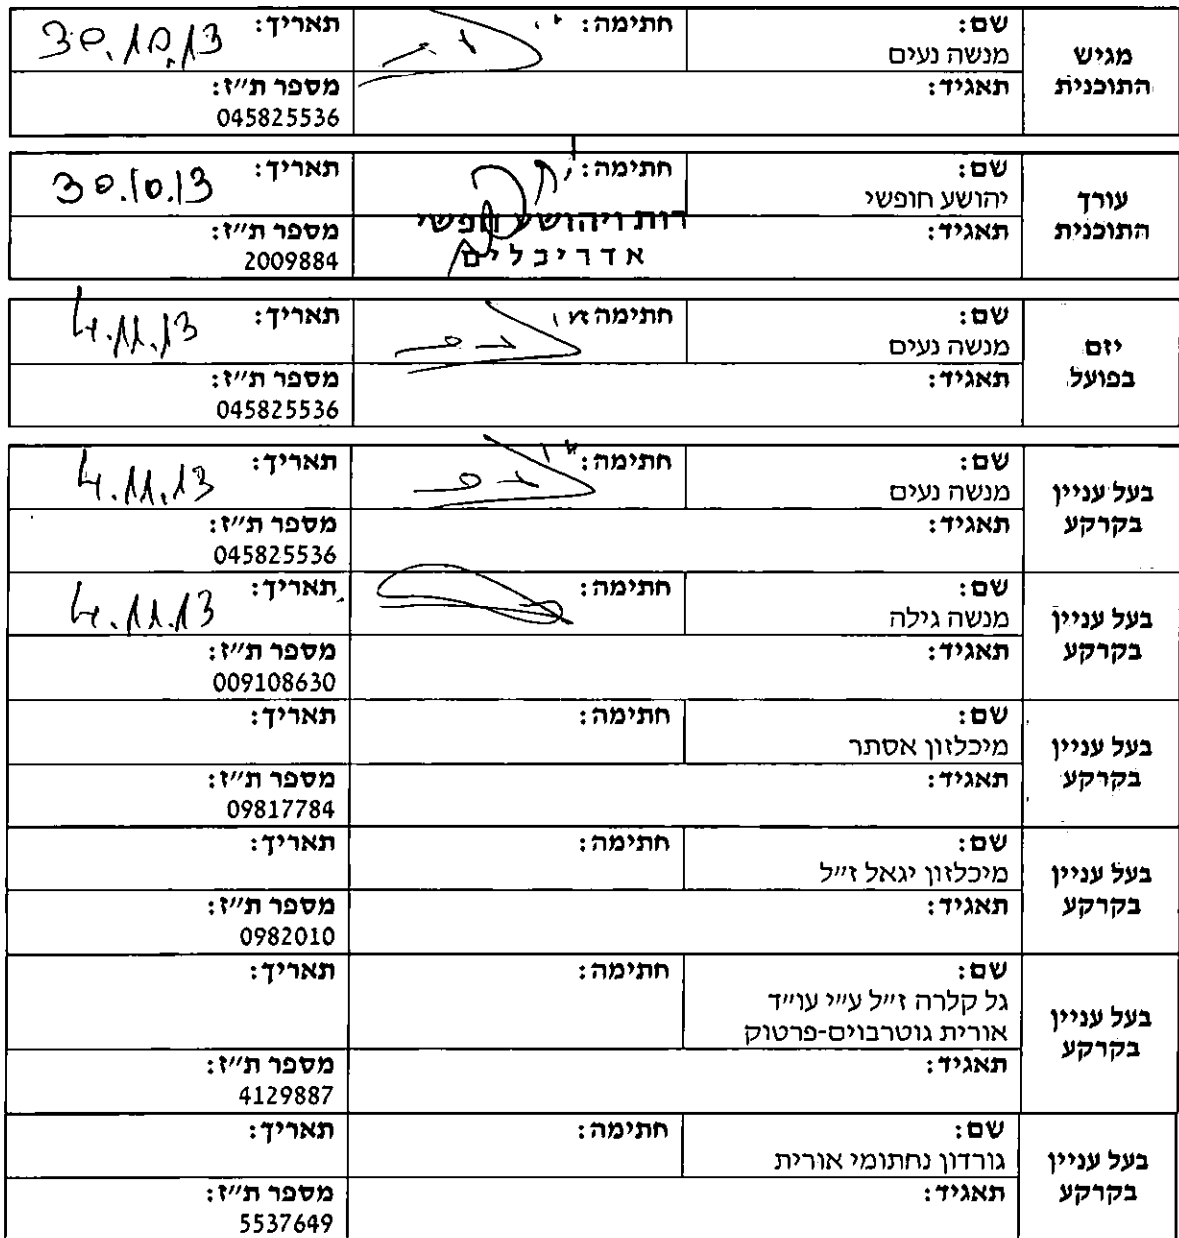 מגיש התוכנית
שם: מנשה נעים
חתימה:
תאריך: 30.10.13
תאגיד:
מספר ת״ז: 045825536
עורך התוכנית
שם: יהושע חופשי
חתימה:
רות ויהושע חופשי
אדריכלים
תאריך: 30.10.13
תאגיד:
מספר ת״ז: 2009884
יזם בפועל
שם: מנשה נעים
חתימה:
תאריך: 4.11.13
תאגיד:
מספר ת״ז: 045825536
בעל עניין בקרקע
שם: מנשה נעים
חתימה:
תאריך: 4.11.13
תאגיד:
מספר ת״ז: 045825536
בעל עניין בקרקע
שם: מנשה גילה
חתימה:
תאריך: 4.11.13
תאגיד:
מספר ת״ז: 009108630
בעל עניין בקרקע
שם: מיכלזון אסתר
חתימה:
תאריך:
תאגיד:
מספר ת״ז: 09817784
בעל עניין בקרקע
שם: מיכלזון יגאל ז״ל
חתימה:
תאריך:
תאגיד:
מספר ת״ז: 0982010
בעל עניין בקרקע
שם: גל קלרה ז״ל ע״י עו״ד
אורית גוטרבוים-פרטוק
חתימה:
תאריך:
תאגיד:
מספר ת״ז: 4129887
בעל עניין בקרקע
שם: גורדון נחתומי אורית
חתימה:
תאריך:
תאגיד:
מספר ת״ז: 5537649